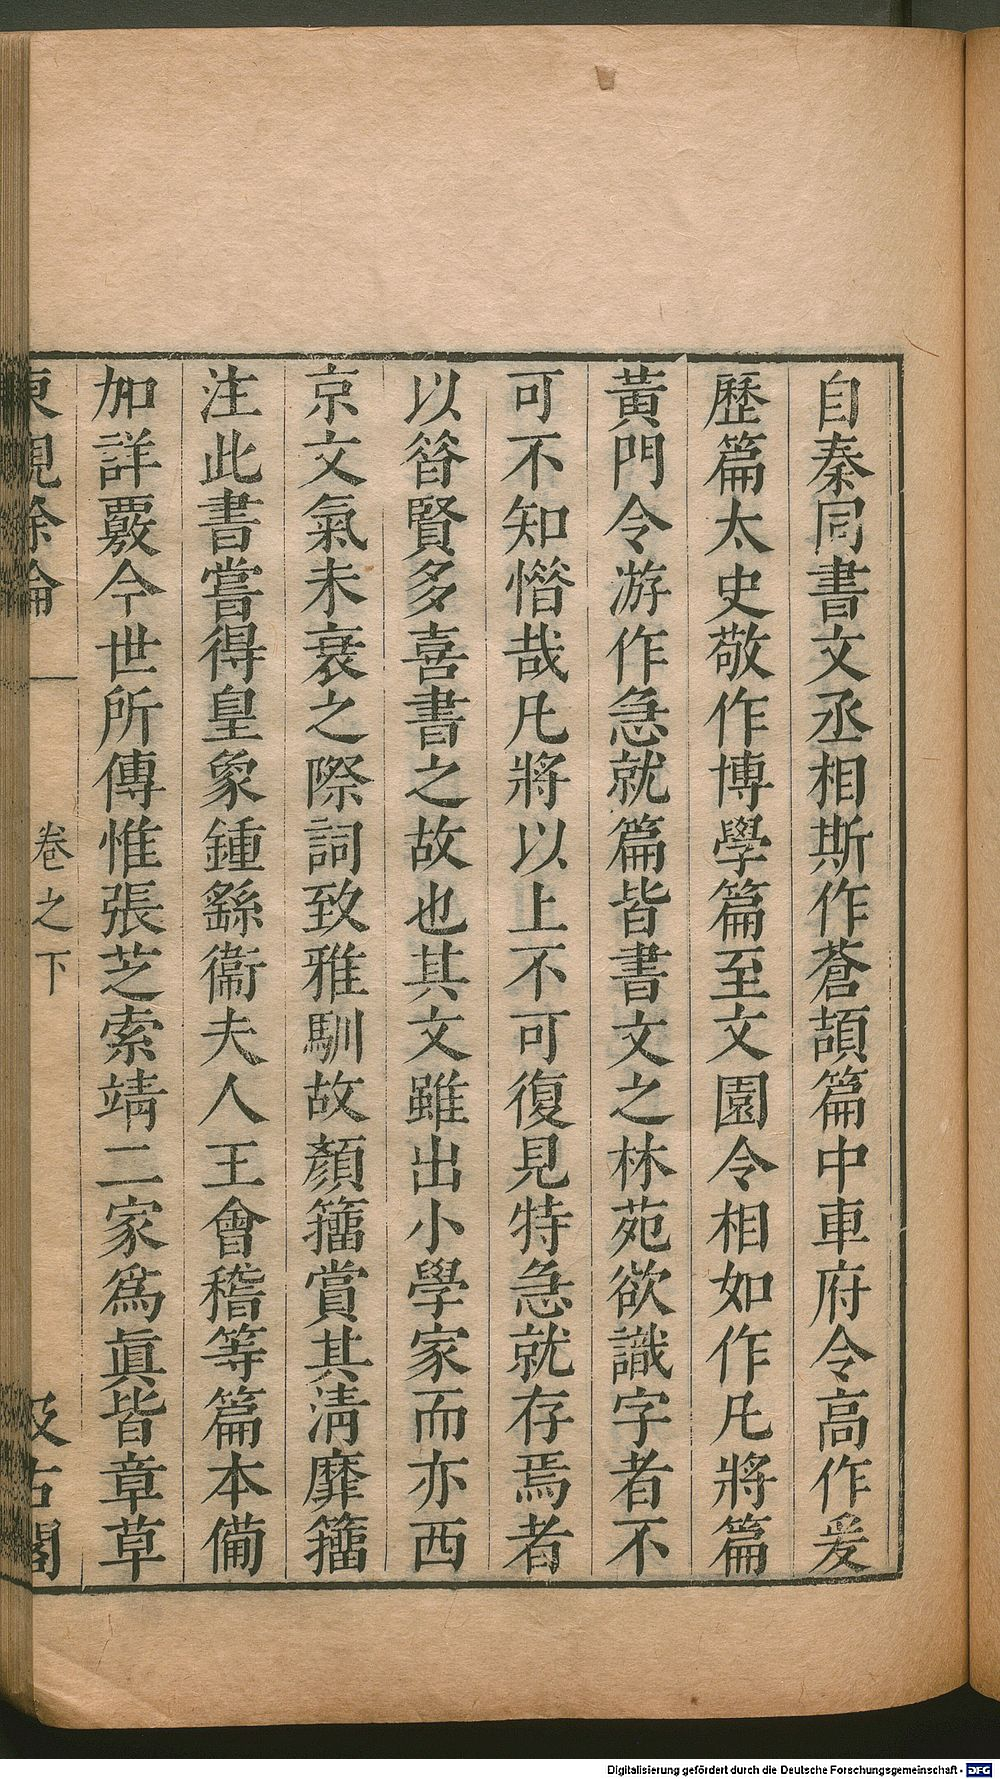 自秦同書文丞相斯作蒼頡篇中車府令高作爰
歷篇太史敬作博學篇至文園令相如作凡將篇
黃門令游作急就篇皆書文之林苑欲識字者不
可不知㦧哉凡將以上不可復見特急就存焉者
以昝賢多喜書之故也其文雖出小學家而亦西
京文氣未衰之際詞致雅馴故顏籕賞其淸靡籕
注此書嘗得皇象鍾繇衞夫人王會稽等篇本備
加詳覈今世所傳惟張芝索靖二家爲眞皆章草
東觀餘論 卷之下 汲古閣
Digitalisierung gefördert durch die Deutsche Forschungsgemeinschaft - DFG